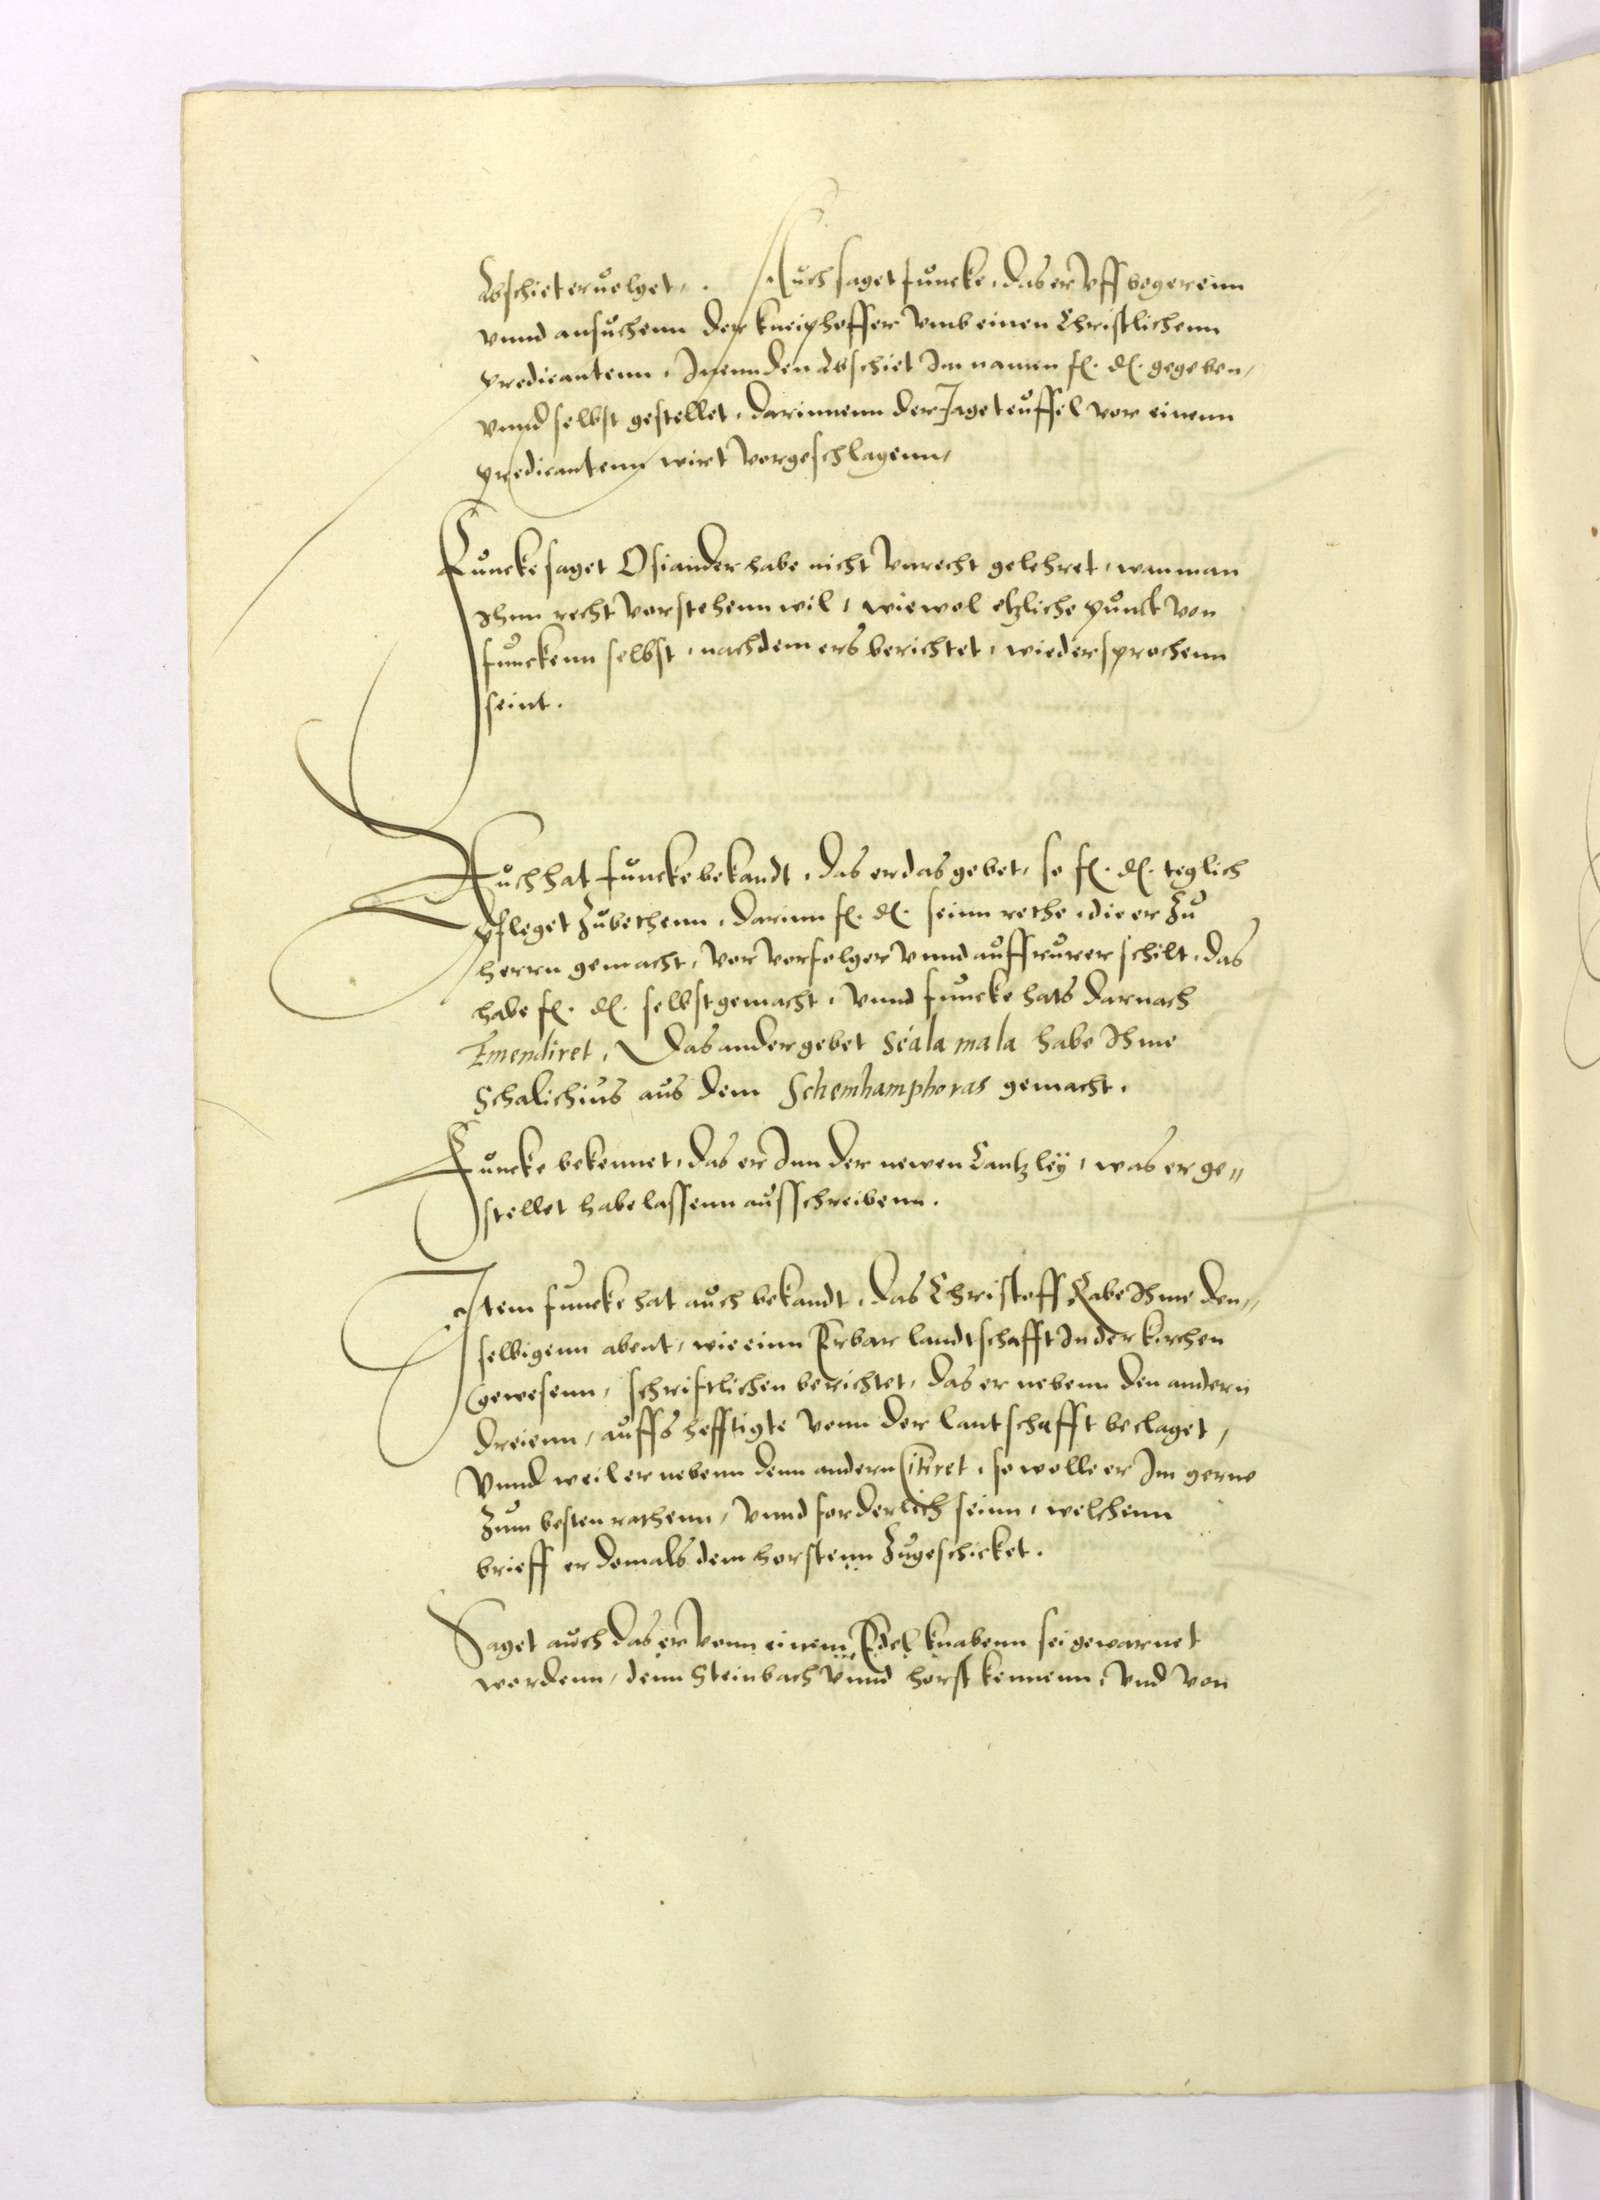 Abschiet eruolget. Auch saget Funcke, das er vff begerenn
vnnd ansuchenn der kneiphoffer vmb einen Christlichenn
predicantenn, Inenn den Abschiet Im namen f. d. gegeben,
vnnd selbst gestellet, darinnenn der Jageteuffel vor einenn
predicantenn wirt vorgeschlagenn,
Funcke saget Osiander habe nicht vnrecht gelehret, wan man
Ihnn recht vorstehenn wil, wiewol etzliche punct von
funckenn selbst, nach dem ers berichtet, wiedersprochenn
seint.
Auch hat Funcke bekandt, das er das gebet, so f. d. teglich
pfleget zubethenn, darinn f. d. seinn rethe, die er zu
herrn gemacht, vor vorfolger vnnd auffrurer schilt, das
habe f. d. selbst gemacht, vnnd funcke hats darnach
Emendiret, Das ander gebet Scala mala habe Ihme
Schalichius aus dem Schemhamphoras gemacht.
Funcke bekennet, das er Inn der newen Cantzleÿ, was er ge„
stellet habe lassenn ausschreibenn.
Item funcke hat auch bekandt, das Christoff Rabe Ihme den„
selbigenn abent, wie einn Erbar landtschafft In der kirchen
gewesenn, schrifftlichen berichtet, das er nebenn den andern
dreienn, auffs hefftigte vonn der lantschafft beclaget,
vnnd weil er nebenn denn andern Citiret, so wolle er Im gerne
zum besten rathenn, vnnd forderlich seinn, welchenn
brieff er domals dem horstenn zugeschicket.
Saget auch das er vonn einem Edel knabenn sei gewarnet
wordenn, denn Steinbach vnnd horst kennenn, vnd von